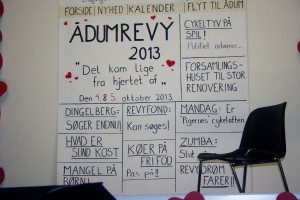 FORSIDE NYHED KALENDER FLYT TIL ÅDUM
ÅDUMREVY
2013
"Det kom lige
fra hjertet af"
Den 4. & 5. oktober 2013
CYKELTYV PÅ
SPIL!
Politiet advarer...
FORSAMLINGS-
HUSET TIL STOR
RENOVERING
DINGELBERG:
SØGER ENDNU!
HVAD ER
SUND KOST
MANGEL PÅ
BØRN!
REVYFOND:
Kan søges!
KØER PÅ
FRI FOD
Pas på!!
MANDAG: Er
"Pigernes" cykelaften
ZUMBA:
Slut
REVYDRØM
FARER!